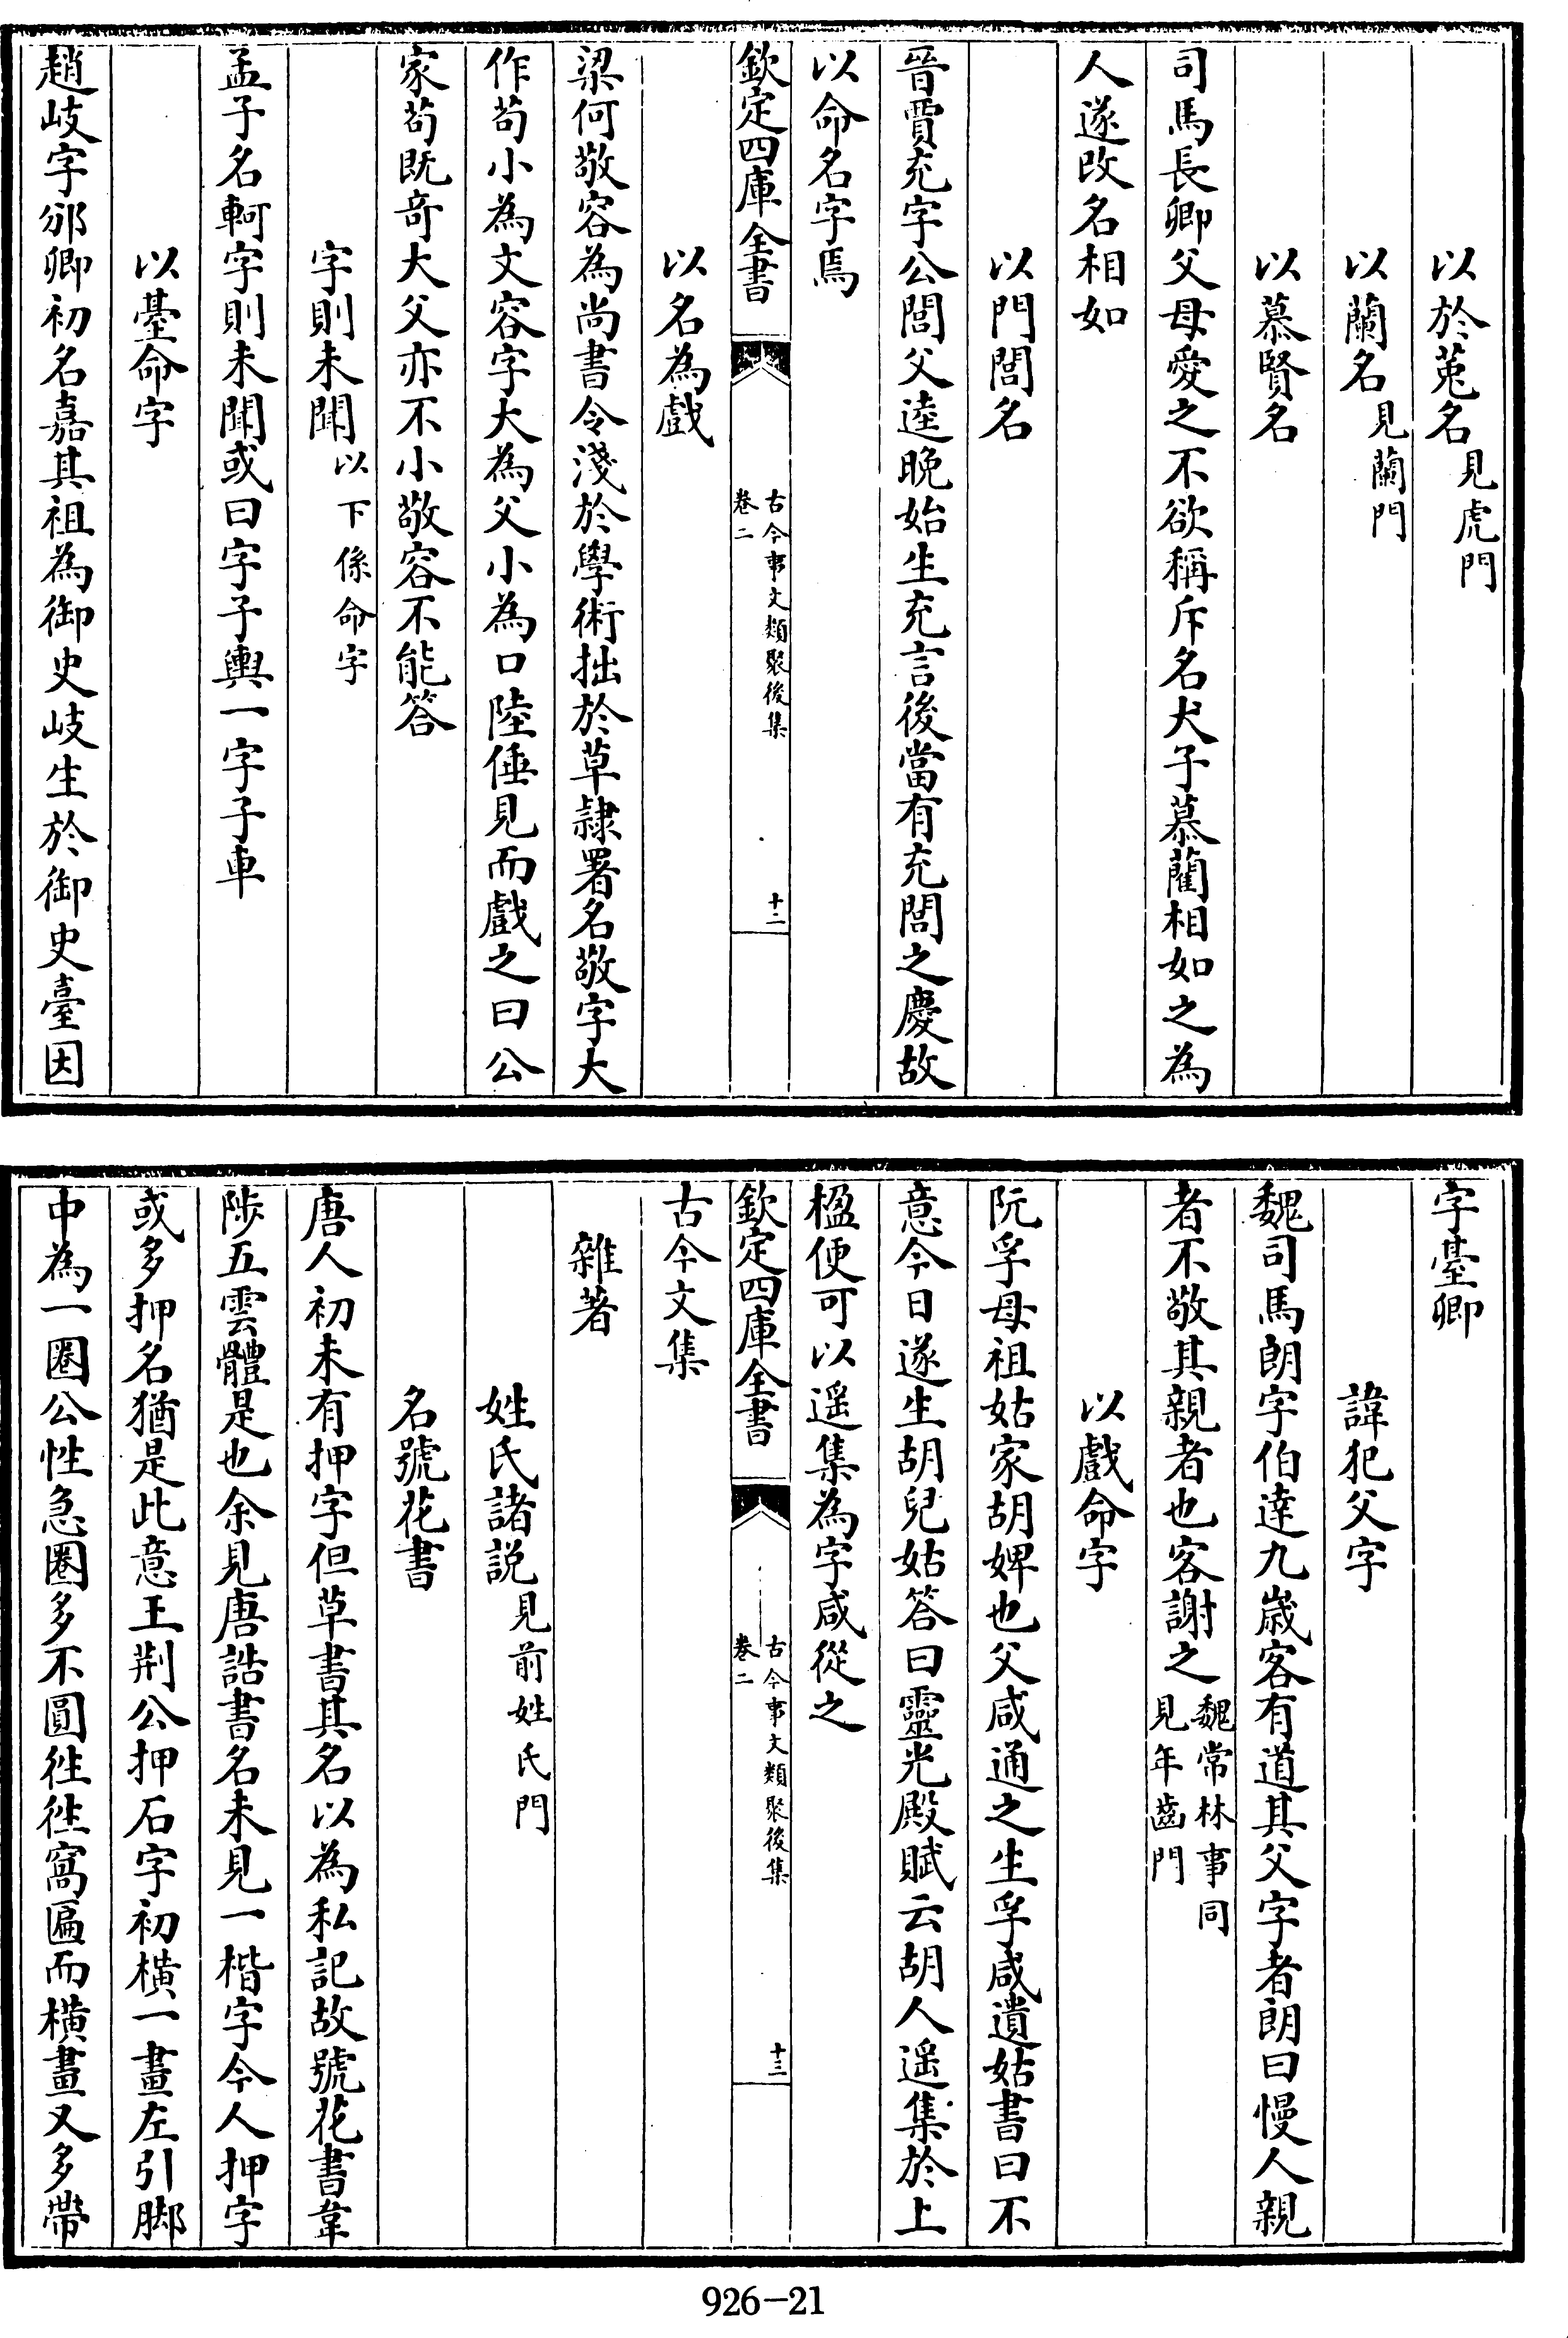 以於菟名見虎門
以蘭名見蘭門
以慕賢名
司馬長卿父母愛之不欲稱斥名犬子慕藺相如之為
人遂改名相如
以門閭名
晉賈充字公閭父逵晚始生充言後當有充閭之慶故
以命名字焉
欽定四庫全書
古今事文類聚後集
卷二
十二
以名為戲
梁何敬容為尚書令淺於學術拙於草隷署名敬字大
作苟小為文容字大為父小為口陸倕見而戲之曰公
家苟既竒大父亦不小敬容不能答
字則未聞以下係命字
孟子名軻字則未聞或曰字子輿一字子車
以臺命字
趙岐字邠卿初名嘉其祖為御史岐生於御史臺因
字臺卿
諱犯父字
魏司馬朗字伯達九嵗客有道其父字者朗曰慢人親
者不敬其親者也客謝之魏常林事同
見年齒門
以戲命字
阮孚母祖姑家胡婢也父咸通之生孚咸遺姑書曰不
意今日遂生胡兒姑答曰靈光殿賦云胡人遥集於上
楹便可以遥集為字咸從之
欽定四庫全書
古今事文類聚後集
卷二
十三
古今文集
雜著
姓氏諸説見前姓氏門
名號花書
唐人初未有押字但草書其名以為私記故號花書韋
陟五雲體是也余見唐誥書名未見一楷字今人押字
或多押名猶是此意王荆公押石字初橫一畫左引脚
中為一圈公性急圈多不圓徃徃窩匾而橫畫又多帶
926-21